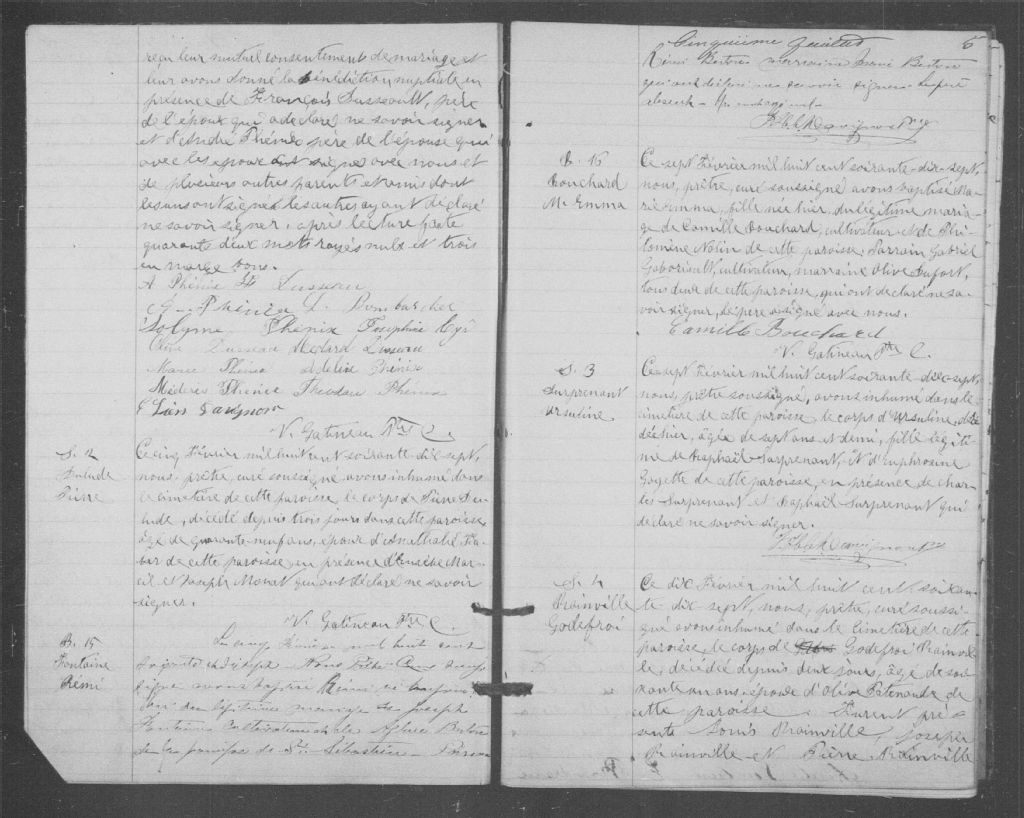 reçu leur mutuel consentement de mariage et
leur avons donné la bénédiction nuptiale en
présence de François Lusseault, père
de l'époux qui a déclaré ne savoir signer
et d'André Phénix père de l'épouse qui
avec les époux ont signés avec nous et
de plusieurs autres parents et amis dont
les uns ont signés les autres ayant déclaré
ne savoir signer, après lecture faite
quarante deux mots rayés nuls et trois
en marge bons.
A Phénix H Lusseau
G. Phénix L.
Solyme Phénix Josephine Cyr
Olive Lusseau Médard Lusseau
Marie Phénix Adelise Phénix
Médérix Phénix Theodore Phénix
V. Gatineau Ptre C.
S. 2
Pierre
Ce cinq Février mil huit cent soixante-dix-sept,
nous, prêtre, curé soussigné avons inhumé dans
le cimetière de cette paroisse le corps de Pierre
décédé depuis trois jours dans cette paroisse,
âgé de quarante-neuf ans, époux d'Anathalie
de cette paroisse, en présence d'Eusèbe
et Joseph Monat qui ont déclaré ne savoir
signer.
V. Gatineau Ptre C.
B. 15
Fontaine
Rémi
Le cinq Février mil huit cent
soixante et dix sept Nous Prêtre Curé
avons baptisé Rémi né
du légitime mariage de Joseph
Fontaine Cultivateur et de
de la paroisse de St. Sébastien
6
Rémi marraine
qui ont déclaré ne savoir signer. Le père
absent.
B. 16
Bouchard
M. Emma
Ce sept Février mil huit cent soixante-dix-sept,
nous, prêtre, curé soussigné avons baptisé Ma-
rie Emma, fille née hier, du légitime maria-
ge de Camille Bouchard, cultivateur et de Phi-
lomène Nolin de cette paroisse. Parrain Gabriel
Gaboriault, cultivateur, marraine Olive Dufort,
tous deux de cette paroisse, qui ont déclaré ne sa-
voir signer, le père a signé avec nous.
Camille Bouchard
V. Gatineau Ptre C.
S. 3
Surprenant
Ursuline
Ce sept Février mil huit cent soixante-dix-sept,
nous, prêtre soussigné, avons inhumé dans le
cimetière de cette paroisse, le corps d'Ursuline, décé-
dée hier, âgée de sept ans et demi, fille légiti-
me de Raphaël Surprenant, & d'Euphrosine
Goyette de cette paroisse, en présence de Char-
les Surprenant et Raphaël Surprenant qui
déclaré ne savoir signer.
S. 4
Rainville
Godefroi
Ce dix Février mil huit cent soixan-
te dix sept, nous, prêtre, curé soussi-
gné avons inhumé dans le cimetière de cette
paroisse, le corps de Godefroi Rainvil-
le, décédé depuis deux jours, âgé de soi-
xante un ans, époux d'Olive Patenaude de
cette paroisse. Furent pré-
sents Louis Rainville, Joseph
Rainville & Pierre Rainville